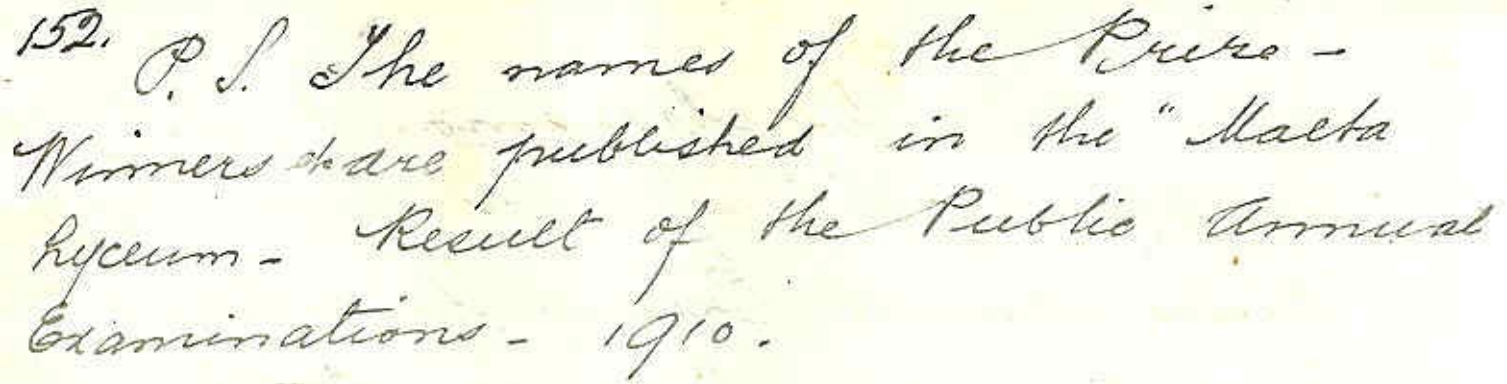 152. P. S. The names of the Prize -
Winners are published in the "Malta
Lyceum - Result of the Public Annual
Examinations - 1910.